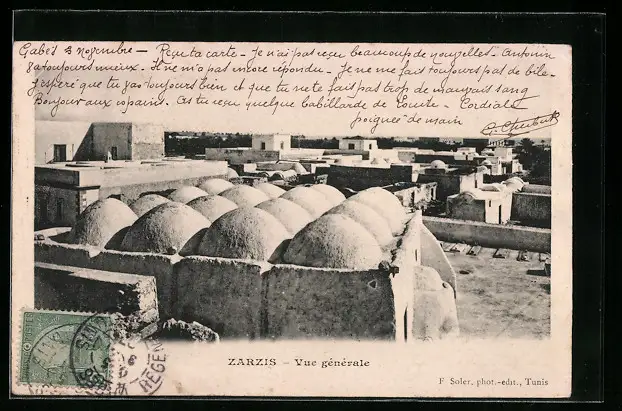 Gabès 3 novembre — Reçu ta carte - Je n'ai pas reçu beaucoup de nouvelles - Antonin
va toujours mieux. Il ne m'a pas encore répondu - Je ne me fais toujours pas de bile -
J'espère que tu vas toujours bien et que tu ne te fais pas trop de mauvais sang
Bonjour aux copains. As tu reçu quelque babillarde de - Cordiale
poignée de main
ZARZIS - Vue générale
F. Soler, phot.-édit., Tunis